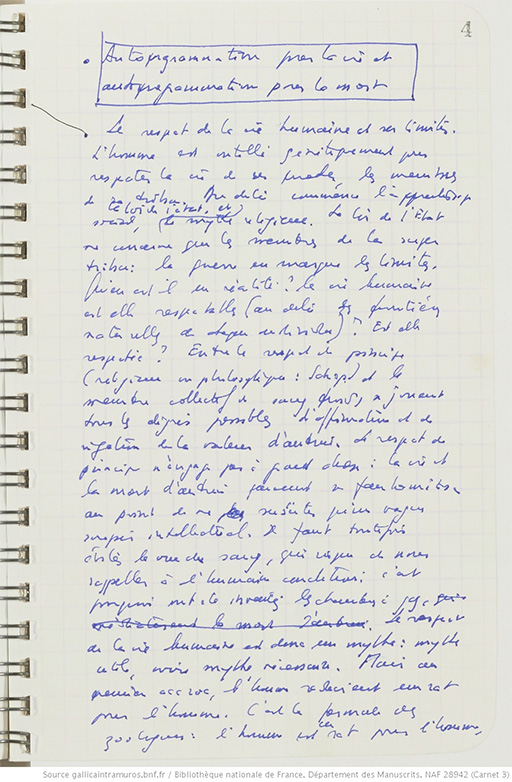 4
Autoprogrammation pour la vie et
autoprogrammation pour la mort
Le respect de la vie humaine et ses limites.
L'homme est outillé génétiquement pour
respecter la vie de ses proches, les membres
de sa tribu. Au delà commence l'apprentissage
(la loi de l'état, etc)
social, le mythe religieux. La loi de l'Etat
ne concerne que les membres de la super
tribu : la guerre en marque les limites.
Qu'en est il en réalité ? La vie humaine
est elle respectable (au delà des frontières
naturelles de chaque individu) ? Est elle
respectée ? Entre le respect de principe
(religieux ou philosophique : ) et le
meurtre collectif de sang froid, se jouent
tous les degrés possibles d'affirmation et de
négation de la valeur d'autrui. Le respect de
principe n'engage pas à grand chose : la vie et
la mort d'autrui peuvent se
au point de ne susciter qu'un vague
intellectuel. Il faut toutefois
éviter la vue du sang, qui risque de nous
rappeler à l'humaine condition ; c'est
pourquoi ont été inventées les chambres à gaz,
la mort d'autrui. Le respect
de la vie humaine est donc un mythe : mythe
utile, voire mythe nécessaire. Mais au
premier accroc, l'homme redevient un rat
pour l'homme. C'est la formule des
zoologues : l'homme est un rat pour l'homme,
Source gallicaintramuros.bnf.fr / Bibliothèque nationale de France. Département des Manuscrits. NAF 28942 (Carnet 3)